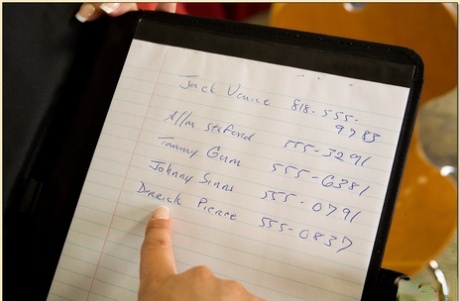 Jack Venice 818-555-
9785
Allan Seaford 555-3291
Tammy Gum 555-6381
Johnny Sinns 555-0791
Derrick Pierce 555-0837